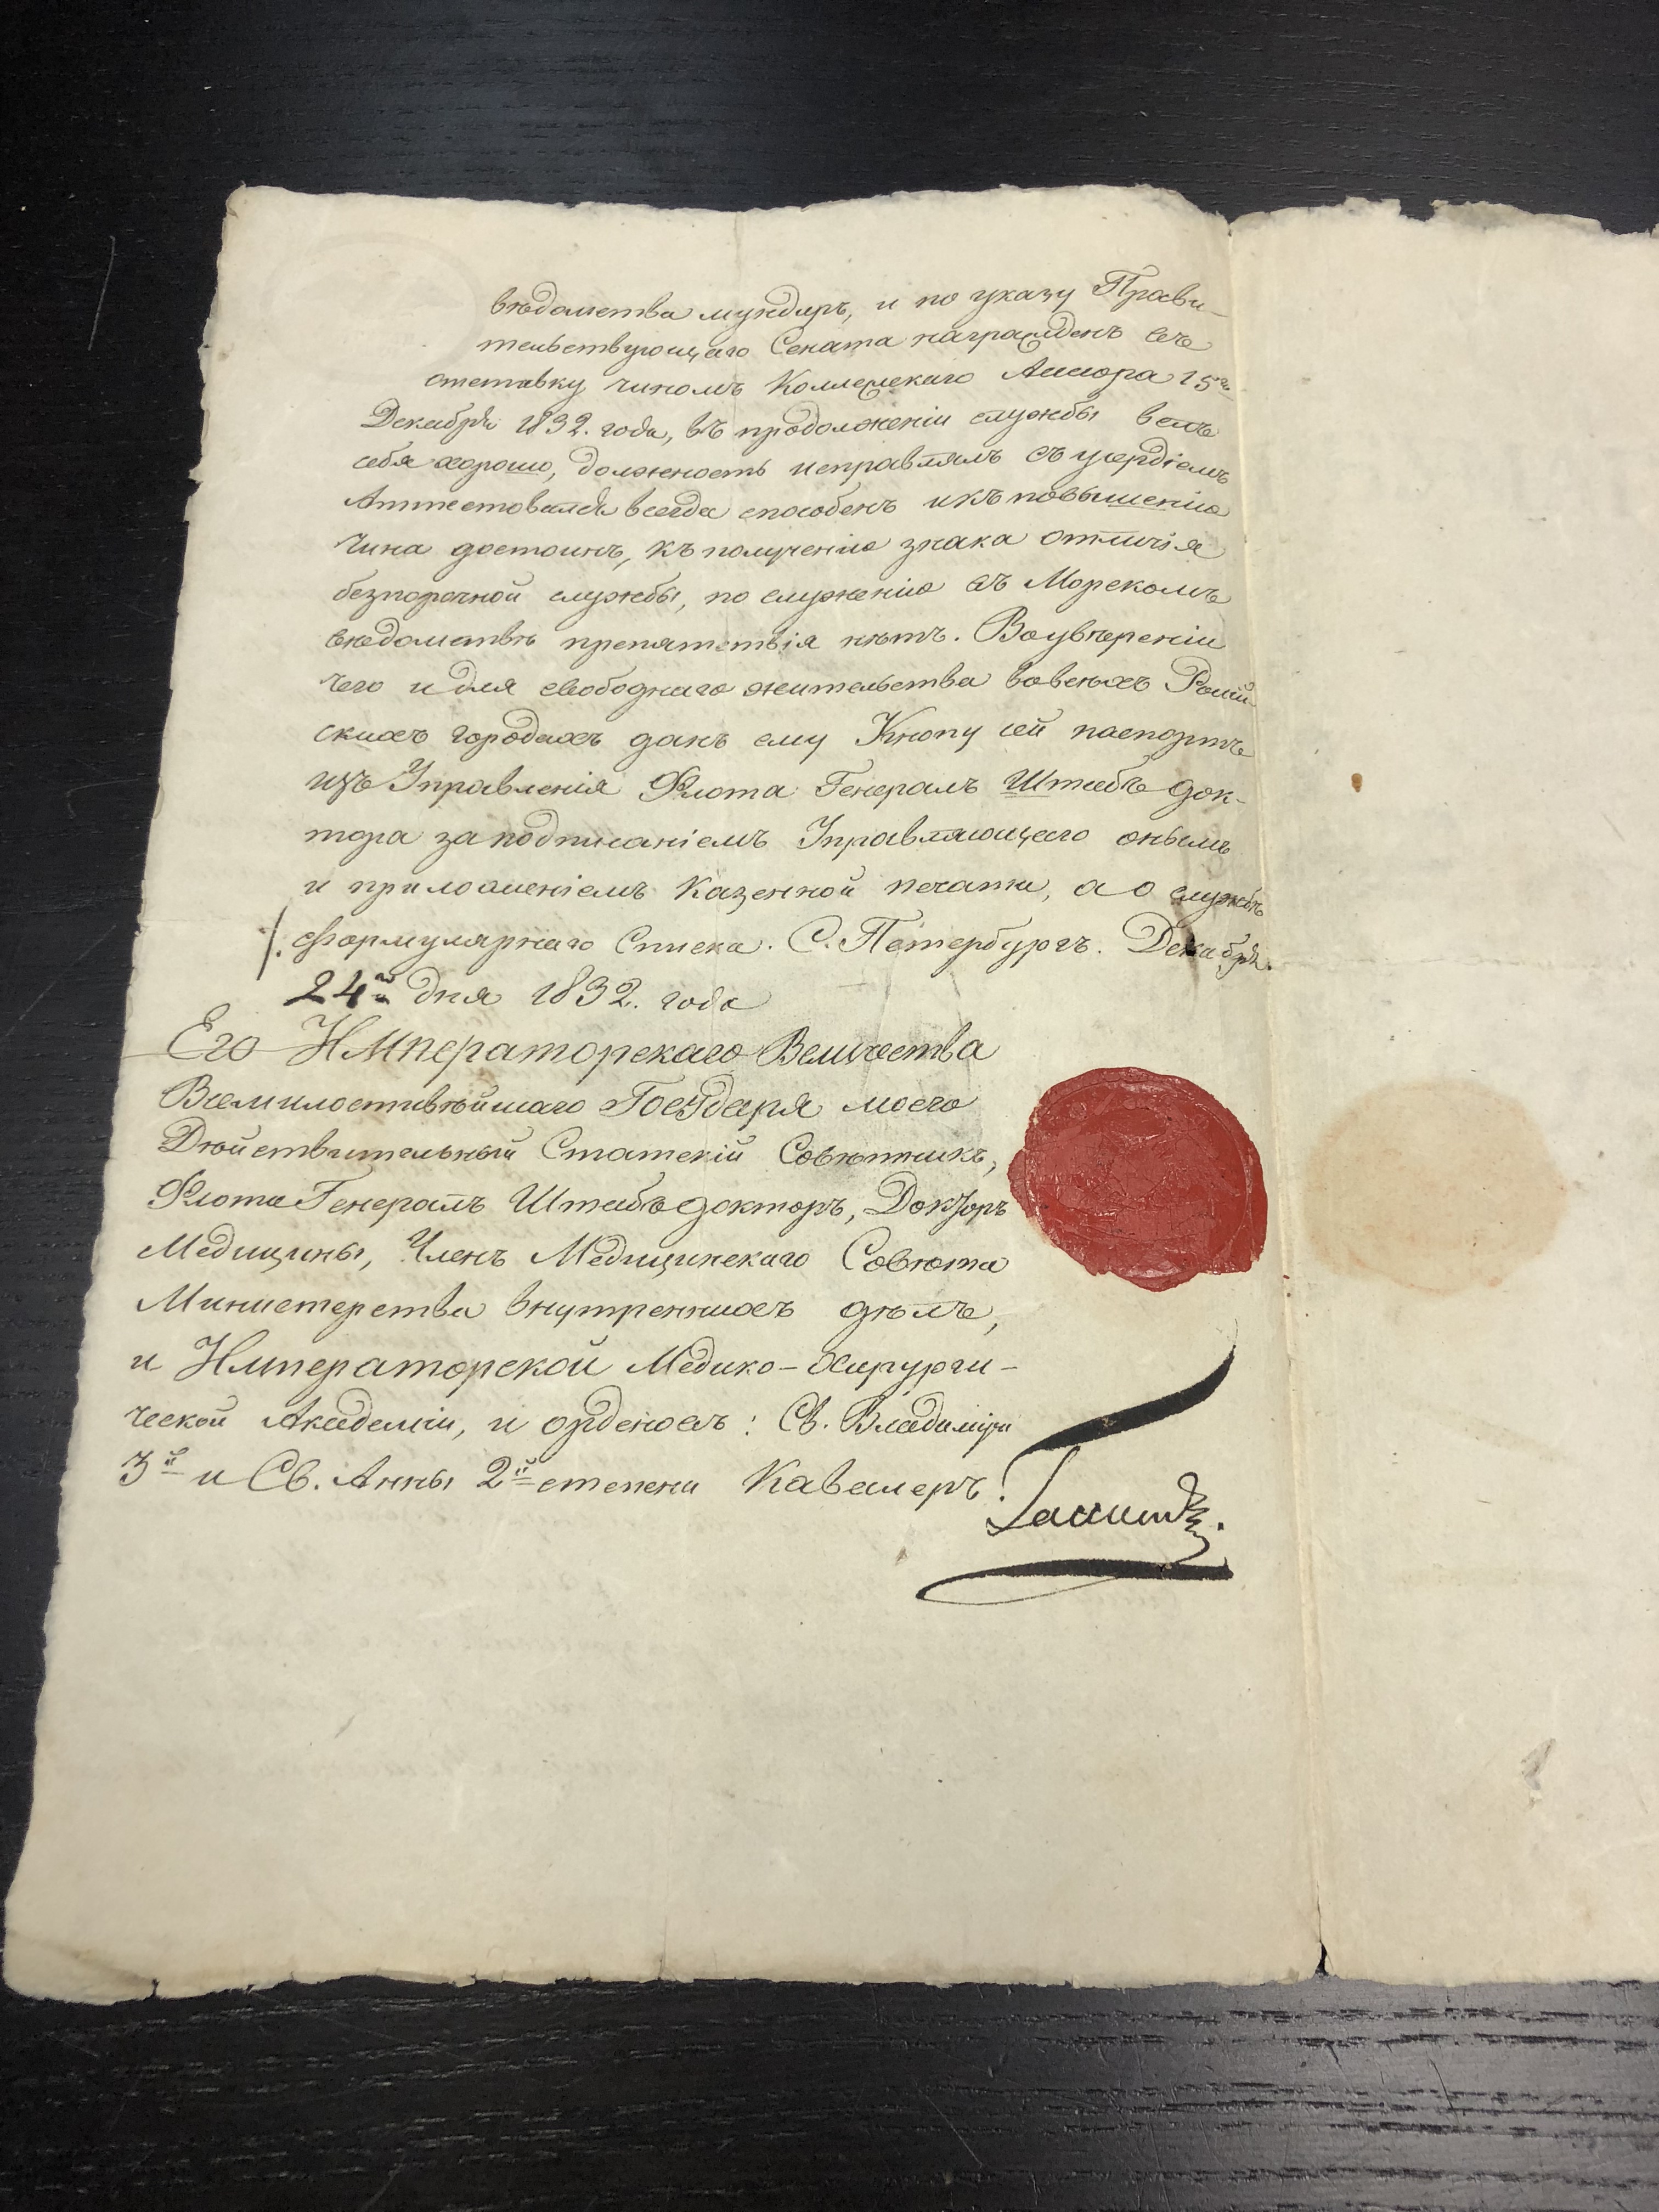 вѣдомства мундиръ, и по указу Прави-
тельствующаго Сената награжденъ въ
отставку чиномъ Коллежскаго Ассесора 15го
Декабря 1832. года, въ продолженіи службы велъ
себя хорошо, должность исправлялъ съ усердіемъ
Аттестовался всегда способенъ и къ повышенію
чина достоинъ, къ полученію знака отличія
безпорочной службы, по служенію въ Морскомъ
вѣдомствѣ препятствія нѣтъ. Во увѣреніи
чего и для свободнаго жительства во всѣхъ Россій-
скихъ городахъ данъ ему Кнопу сей паспортъ
изъ Управленія Флота Генералъ Штабъ Док-
тора за подписаніемъ Управляющаго онымъ
и приложеніемъ казенной печати, а о службѣ
формулярнаго Списка. С. Петербургъ. Декабря.
24го дня 1832. года
Его Императорскаго Величества
Всемилостивѣйшаго Государя моего
Дѣйствительный Статскій Совѣтникъ,
Флота Генералъ Штабъ Докторъ, Докторъ
Медицины, Членъ Медицинскаго Совѣта
Министерства внутреннихъ дѣлъ,
и Императорской Медико-Хирурги-
ческой Академіи, и орденовъ: Св. Владиміра
3й и Св. Анны 2й степени Кавалеръ.